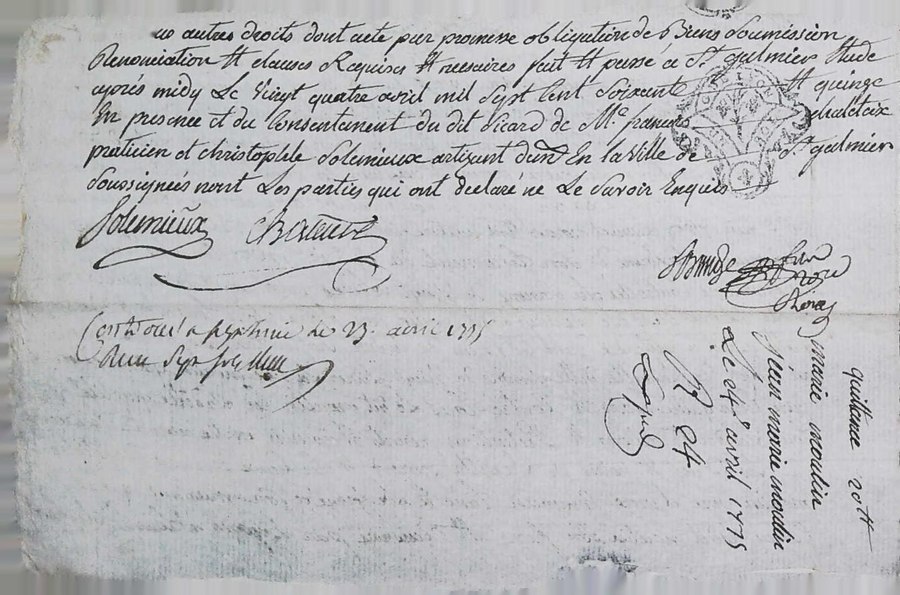 autres droits dont acte par promesse obligation de Biens Soumission
Renonciation Et clauses Requises Et necsaires fait Et passé à St galmier Etude
aprés midy Le Vingt quatre avril mil Sept Cent Soixante Et quinze
En presence et du Consentement du dit Sicard de Me francois
praticien et christophle Solemieux artizant dud En la Ville de St galmier
Soussignées nont Les parties qui ont declaré ne Le Savoir Enquis
Solemieux
not
Royal
Controllé a le 23 avril 1775
Reçu Sept
quittance 20tt
marie moulin
jean marie moulin
Le 24e avril 1775
R 24